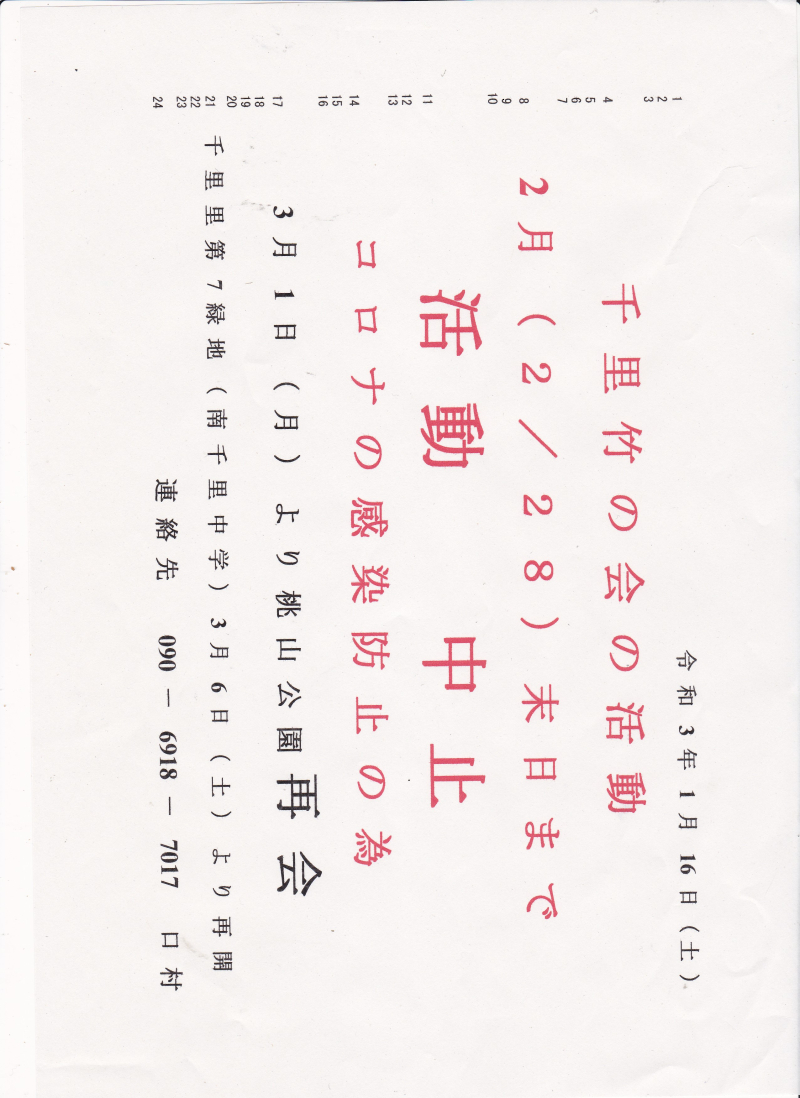 1
2
3
4
5
6
7
8
9
10
11
12
13
14
15
16
17
18
19
20
21
22
23
24
令和3年1月16日(土)
千里竹の会の活動
2月(2/28)末日まで
活動 中止
コロナの感染防止の為
3月1日(月)より桃山公園再会
千里里第7緑地(南千里中学)3月6日(土)より再開
連絡先 090-6918-7017 口村